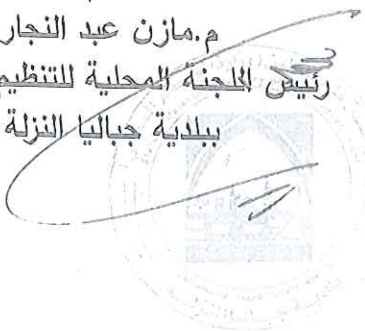 م.مازن عبد النجار
رئيس اللجنة المحلية للتنظيم
ببلدية جباليا النزلة